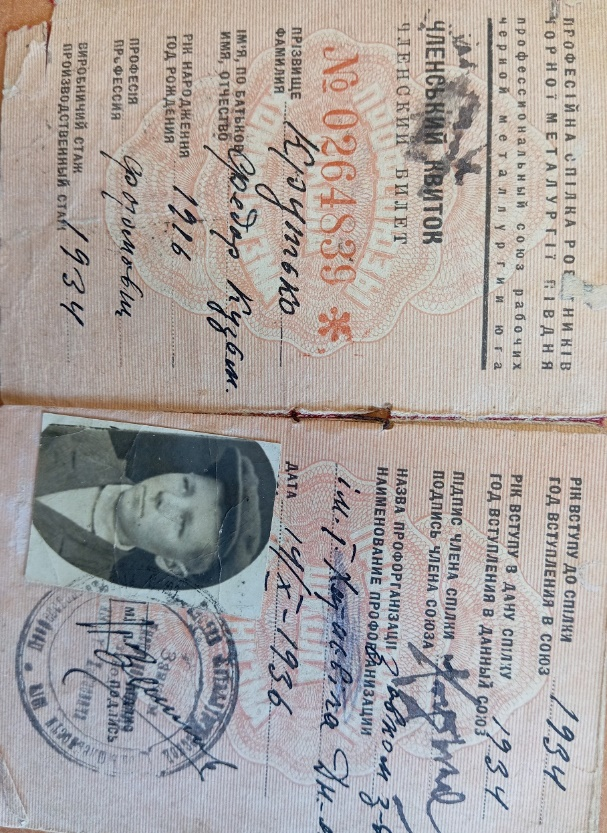 ПРОФЕСІЙНА СПІЛКА
ЧОРНОЇ МЕТАЛУРГІЇ ПІВДНЯ
профессиональный союз рабочих
черной металлургии юга
ЧЛЕНСЬКИЙ КВИТОК
ЧЛЕНСКИЙ БИЛЕТ
№ 0264839
ПРІЗВИЩЕ
ФАМИЛИЯ Крутько
ІМ'Я, ПО БАТЬКОВІ
ИМЯ, ОТЧЕСТВО Федор Кузьм.
РІК НАРОДЖЕННЯ
ГОД РОЖДЕНИЯ 1916
ПРОФЕСІЯ
ПРОФЕССИЯ
ВИРОБНИЧИЙ СТАЖ
ПРОИЗВОДСТВЕННЫЙ СТАЖ 1934
РІК ВСТУПУ ДО СПІЛКИ
ГОД ВСТУПЛЕНИЯ В СОЮЗ 1934
РІК ВСТУПУ В ДАНУ СПІЛКУ
ГОД ВСТУПЛЕНИЯ В ДАННЫЙ СОЮЗ 1934
ПІДПИС ЧЛЕНА СПІЛКИ
ПОДПИСЬ ЧЛЕНА СОЮЗА
НАЗВА ПРОФОРГАНІЗАЦІЇ
НАИМЕНОВАНИЕ ПРОФОРГАНИЗАЦИИ Завком з-
ім.
ДАТА 14/X-1936